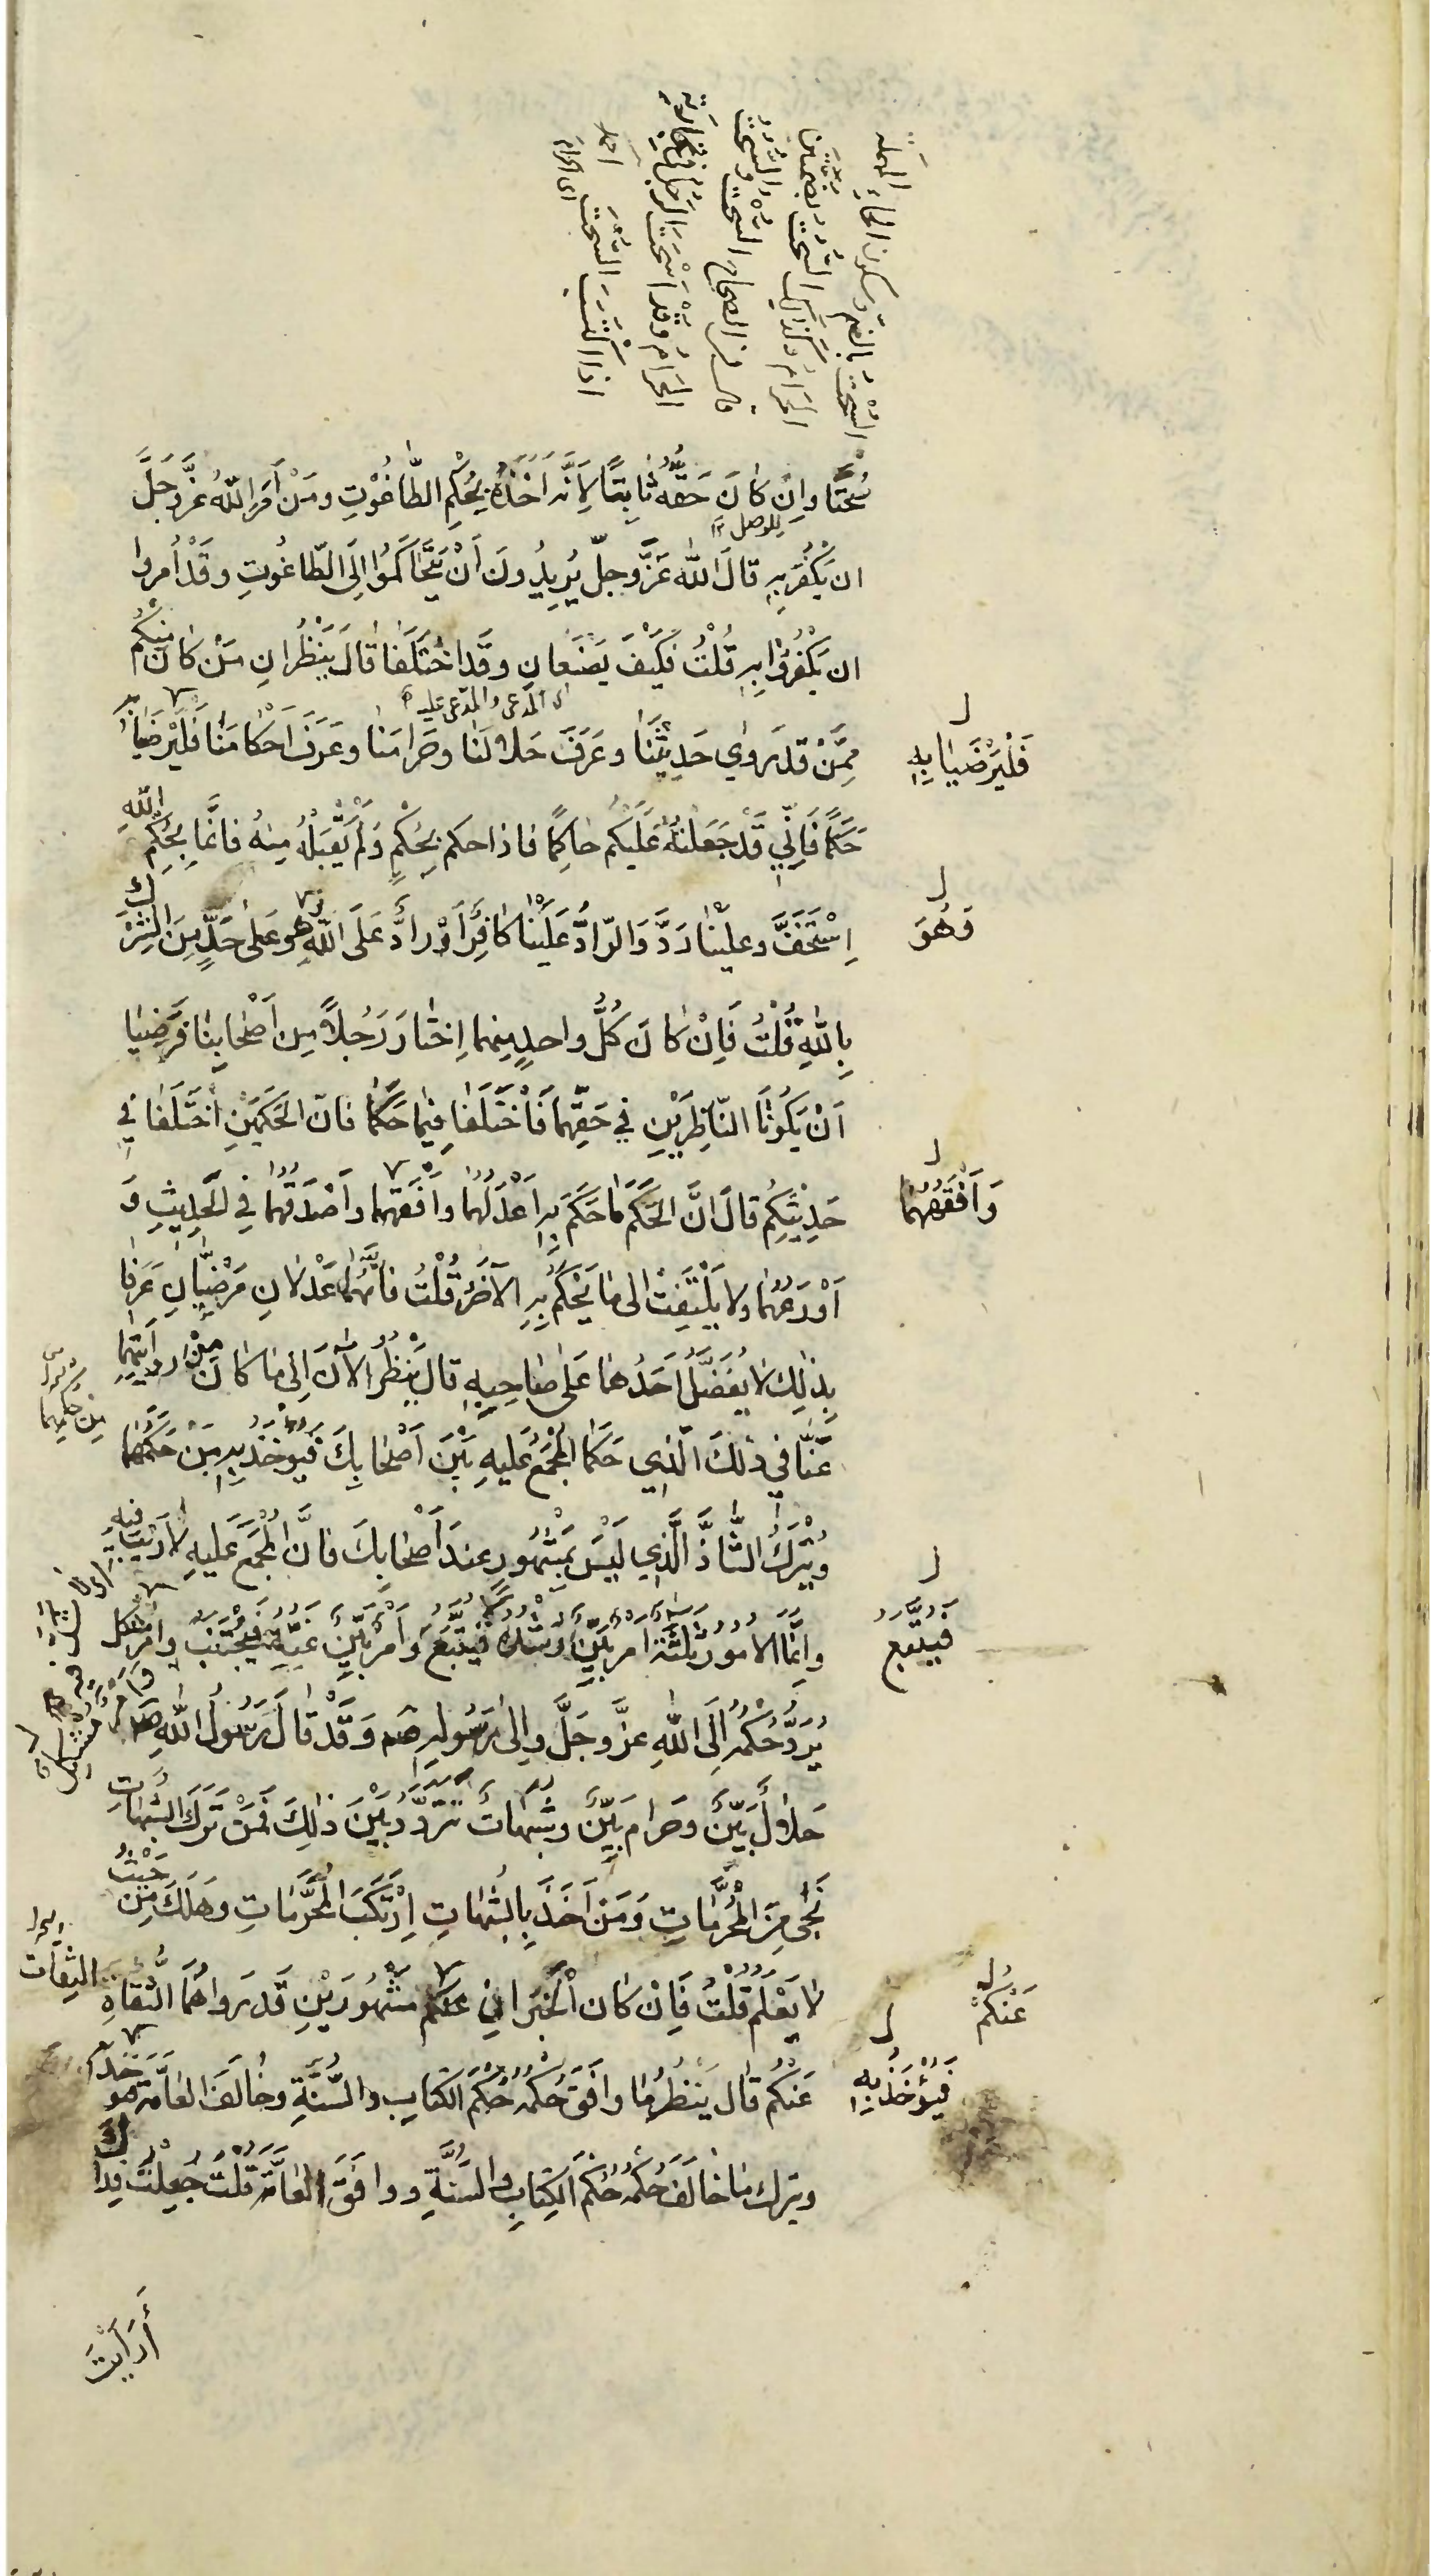 السُّحْتُ بالضّم وسكون الحاءِ المهمله
الحَرَامُ وكَذلِكَ السُّحُتُ بضمتين
قال في الصحاح السُّحْتُ والسُّحُتُ
الحَرَامُ وقَدْ اَسْحَتَ الرَّجُلُ في تِجَارَتِهِ
اذا اكْتَسَبَ السُّحْتَ
اى الحرام
سُحْتًا وإنْ كانَ حَقُّهُ ثابِتًا لِاَنَّه اَخَذَهُ بِحُكْمِ الطّاغُوْتِ ومَنْ اَمَرَ اللّٰهُ عَزَّوَجَلَّ
للوصل
ان يَكْفُرَ بِهِ قالَ اللّٰه عَزَّ وجلّ يُرِيدُونَ اَنْ يَتَحَاكَمُوْا اِلَى الطّاغُوتِ وقَدْ اُمروا
ان يَكْفُرُوْا بِهِ قُلْتُ فَكَيْفَ يَصْنَعانِ وقَدِ اخْتَلَفا قالَ يَنْظُرانِ مَنْ كانَ مِنكُم
اى المدعى والمدّعى عليه
مِمَّنْ قَد رَوٰي حَدِيْثَنٰا وعَرَفَ حَلالَنٰا وحَرامَنٰا وعَرَفَ اَحْكامَنٰا فَلْيَرْضَيٰا
فَلْيَرْضَيٰا بِهِ
حَكَمًا فَاِنّي قَدْ جَعَلْتُهُ عَلَيْكُم حٰاكِمًا فاذا حكم بِحُكْمٍ وَلَمْ يَقْبَلْهُ مِنهُ فانَّما بِحُكْمِ اللّٰهِ
اِسْتَخَفَّ وعلينٰا رَدَّ وَالرّادُّ عَلَيْنٰا كٰافِرٌ اَوْ رادٌّ عَلَى اللّٰهِ هو عَلٰى حَدٍّ مِنَ الشِّرْكِ
وَهُوَ
بِاللّٰهِ قُلْتُ فَاِنْ كانَ كُلُّ واحدٍ مِنهما اِختٰارَ رَجُلاً مِن اَصْحٰابِنٰا فَرَضِيٰا
اَنْ يَكُونَا النّاظِرَيْنِ في حَقِّهِمٰا فَاْخْتَلَفٰا فِيْما حَكَمٰا فانّ الحَكَمَيْنِ اْخْتَلَفا في
حَدِيْثِكُم قالَ انَّ الحَكَمَ مٰا حَكَمَ بِهِ اَعْدَلُهُمٰا وافَقَهُما واَصْدَقُهُمٰا فِي الْحَدِيثِ وَ
وَاَفْقَهُهُمٰا
اَوْرَعُهُمٰا ولا يَلْتَفِتْ الى مٰا يَحْكُمُ بِهِ الآخَرُ قُلْتُ فانَّهُمٰا عَدْلانِ مَرْضِيّٰانِ عَرَفٰا
بِذٰلِكَ لايُفَضَّلُ اَحَدُهُمٰا عَلٰى صٰاحِبِهِ قالَ يُنْظَرُ الْآنَ اِلى مٰا كانَ مِنْ روايَتِهِمٰا
مِن حُكْمِهِمٰا
عَنّا في ذلكَ الّذِي حَكَمٰا المُجْمَعُ عَلَيهِ بَيْنَ اَصْحٰابِكَ فَيُوْخَذُ بِهِ مِنْ حَكَمِهِمٰا
ويُتْرَكُ الشّٰاذُّ الَّذِي لَيْسَ بِمَشْهُورٍ عندَ اَصْحٰابِكَ فانَّ المُجْمَعَ عَلَيهِ لارَيْبَ فيهِ
وانَّما الاُمُورُ ثَلثةٌ اَمْرٌ بَيِّنٌ رُشْدُهُ فَيُتَّبَعُ وَاَمْرٌ بَيِّنٌ غَيُّهُ فَيُجْتَنَبُ وامْرٌ مُشكل
فَيُتَّبَعُ
وَاَمْرٌ مُشْكِلٌ
يُرَدُّ حُكْمُهُ اِلَى اللّٰهِ عزَّ وجَلَّ واِلى رَسُولِهِ صٓ وَقَدْ قالَ رَسُولُ اللّٰهِ صٓ
حَلالٌ بَيِّنٌ وحَرام بَيِّنٌ وشُبُهٰاتٌ تتَرَدَّدُ بَيْنَ ذٰلِكَ فَمَنْ تَرَكَ الشُّبُهاتِ
نَجٰى مِنَ الْمُحَرَّمٰاتِ وَمَنْ اَخَذَ بِالشُّبُهٰاتِ اِرْتَكَبَ المُحَرَّمٰاتِ وهَلَكَ مِن حَيْثُ
لا يَعْلَمُ قُلْتُ فَاِنْ كان الْخَبَرانِ عَنكم مَشْهُورَيْنِ قَد رَواهُمَا الثُّقاةُ
الثِقات
عَنْكُمْ
عَنْكُم قال يُنْظَرُ مٰا وافَقَ حُكْمُهُ حُكْمَ الكتابِ والسُّنَّةِ وخٰالَفَ العٰامَّة هو خذ
فَيُؤْخَذُ بِهِ
ويترك مٰا خٰالَفَ حُكْمُهُ حُكْمَ الكِتابِ والسُّنَّةِ ووافَقَ العٰامَّةَ قُلْتُ جُعِلْتُ فِداكَ
أَرَاَيْتَ